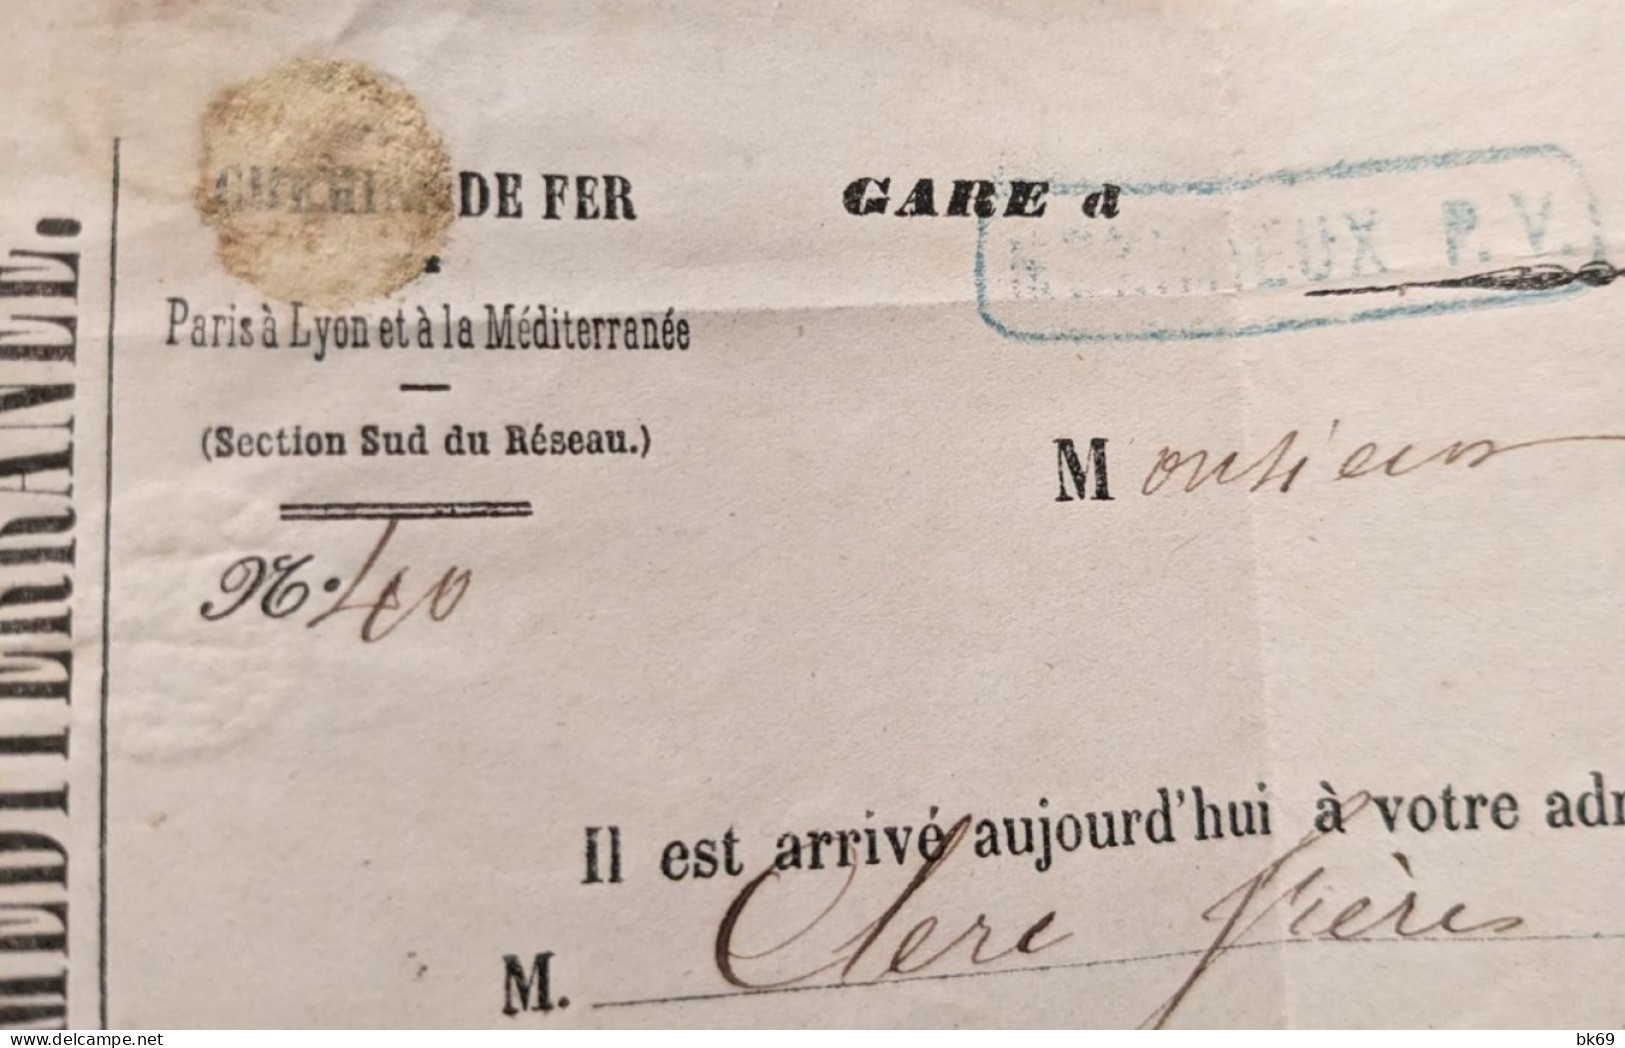 MEDITERRANEE.
CHEMIN DE FER
GARE d
P. V.
Paris à Lyon et à la Méditerranée
(Section Sud du Réseau.)
Monsieur
N. 40
Il est arrivé aujourd'hui à votre adr
M. Clerc frères
delcampe.net
bk69